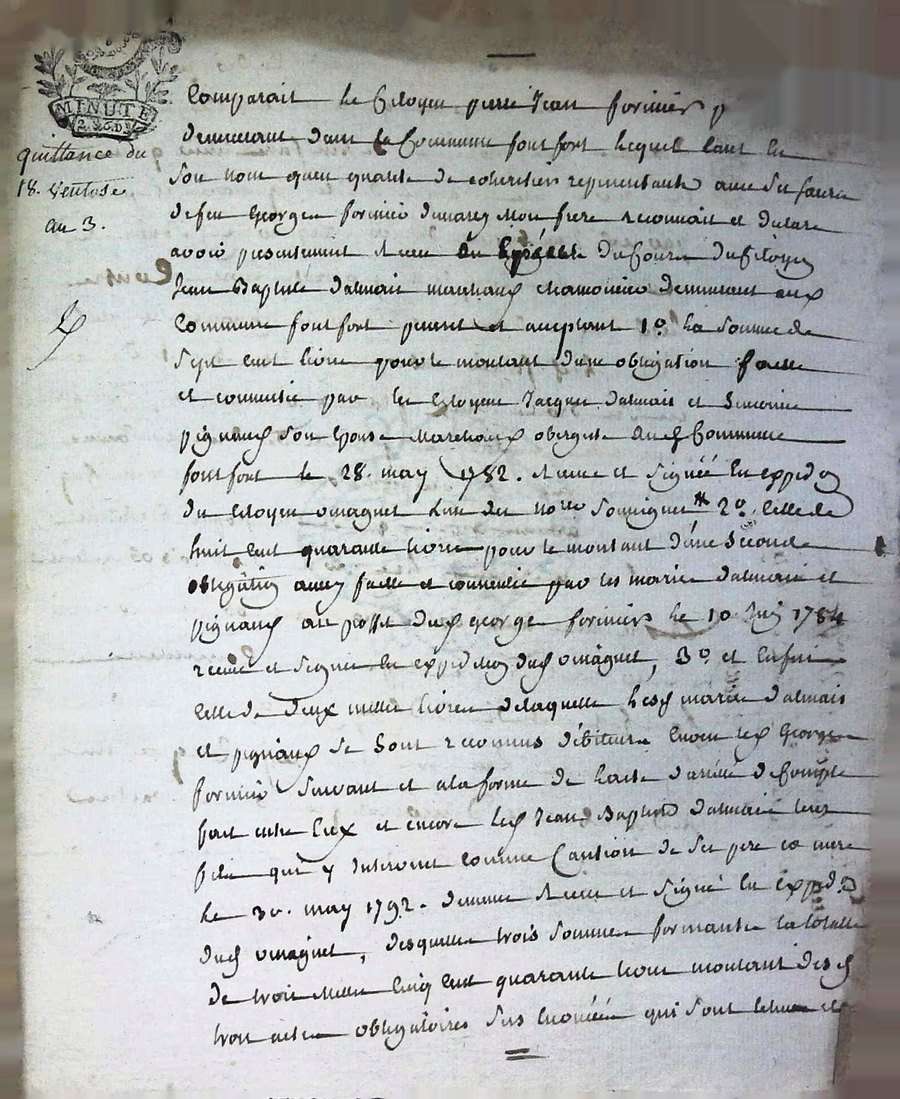 MINUTE
quittance du
18. ventose
au 3.
Comparait le Citoyen pierre Jean forinier p
demeurant dans la Commune fontfort lequel tant en
son nom quen qualité de coheritier representants avec
de feu George forinier son frere reconnait et declare
avoir presentement recu du Citoyen
Jean Baptiste dalmais marchand demeurant
Commune fontfort present et acceptant 1o. la Somme de
Sept cent livres pour le montant dune obligation faitte
et consentie par les Citoyens Jacques dalmais et
pignaud son Epouse Commune
fontfort le 28. may 1782. recue et signée En expedon
du Citoyen omaguet lun des nores Soussignes # 2o. Celle de
huit cent quarante livres pour le montant dune seconde
obligation aussy faitte et consentie par les maries dalmais et
pignaud au proffit dud George forinier le 10 1784
recue et signée En expedition dud omaguet, 3o. et Enfin
Celle de deux mille livres de laquelle lesd maries dalmais
et pignaud se Sont reconnus debiteurs Envers led George
forinier Suivant et a la forme de lacte darrêté de Compte
fait entre Eux et encore led Jean Baptiste dalmais leur
fils qui y Intervient Comme Caution de Ses pere et mere
le 30. may 1792. recue et Signé En expedon
dud omaguet, desquelles trois Sommes formants la totalle
de trois Mille Cinq Cent quarante livres montant desd
trois actes obligatoires Sus Enoncés qui Sont